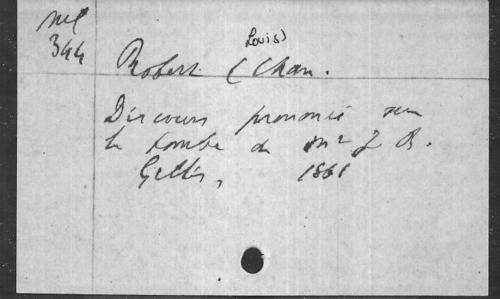 Mel
344
Robert (Chan. Louis)
Discours prononcé sur
la tombe de Mr J. B.
1861